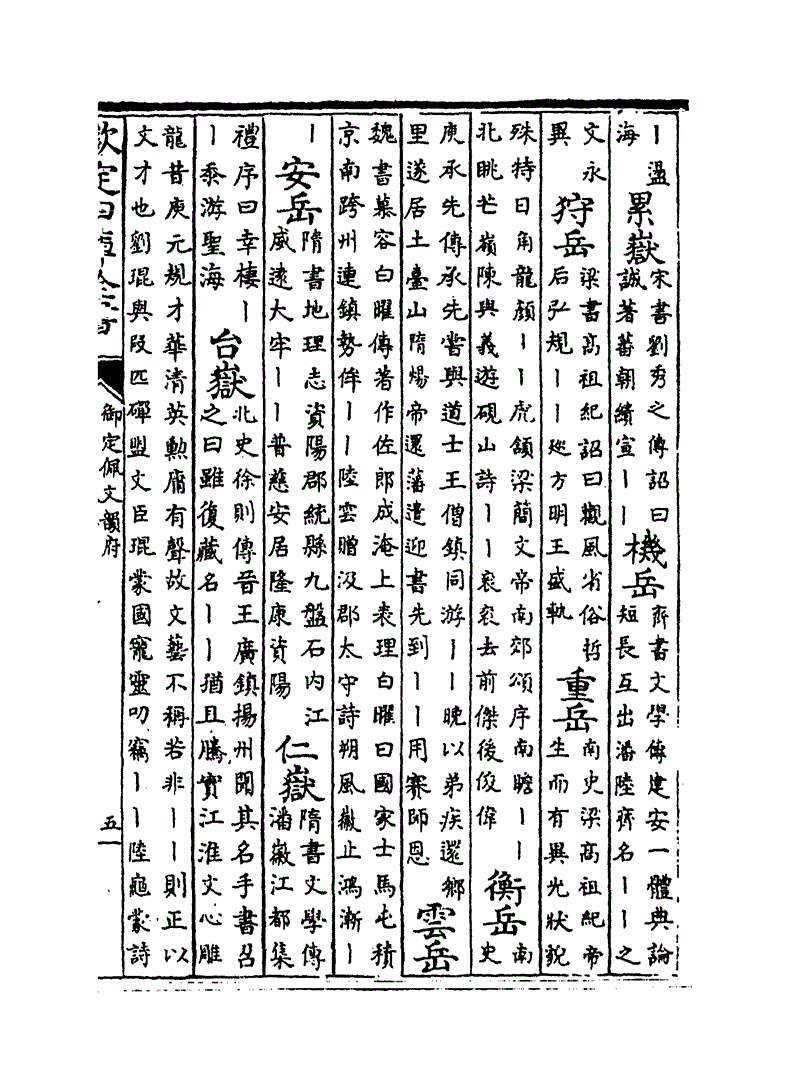 丨溫海 累嶽 宋書劉秀之傳詔曰誠著蕃朝績宣丨丨 機岳 齊書文學傳建安一體典論短長互出潘陸齊名丨丨之
文永異 狩岳 梁書髙祖紀詔曰觀風省俗哲后弘規丨丨廵方明王盛軌 重岳 南史梁髙祖紀帝生而有異光狀貌
殊特日角龍顔丨丨虎額梁簡文帝南郊頌序南瞻丨丨北眺芒嶺陳與義遊硯山詩丨丨衮衮去前傑後俊偉 衡岳 南史
庾承先傳承先嘗與道士王僧鎮同游丨丨晚以弟疾還鄉里遂居土臺山隋煬帝還藩遣迎書先到丨丨用賽師恩 雲岳
魏書慕容白曜傳著作佐郎成淹上表理白曜曰國家士馬屯積京南跨州連鎮勢侔丨丨陸雲贈汲郡太守詩朔風徽止鴻漸丨
丨 安岳 隋書地理志資陽郡統縣九盤石内江威逺大牢丨丨普慈安居隆康資陽 仁嶽 隋書文學傳潘徽江都集
禮序曰幸棲丨丨忝游聖海 台嶽 北史徐則傳晉王廣鎮揚州聞其名手書召之曰雖復藏名丨丨猶且騰實江淮文心雕
龍昔庾元規才華清英勲庸有聲故文藝不稱若非丨丨則正以文才也劉琨與段匹磾盟文臣琨蒙國寵靈叨竊丨丨陸龜蒙詩
欽定四庫全書
御定佩文韻府
五